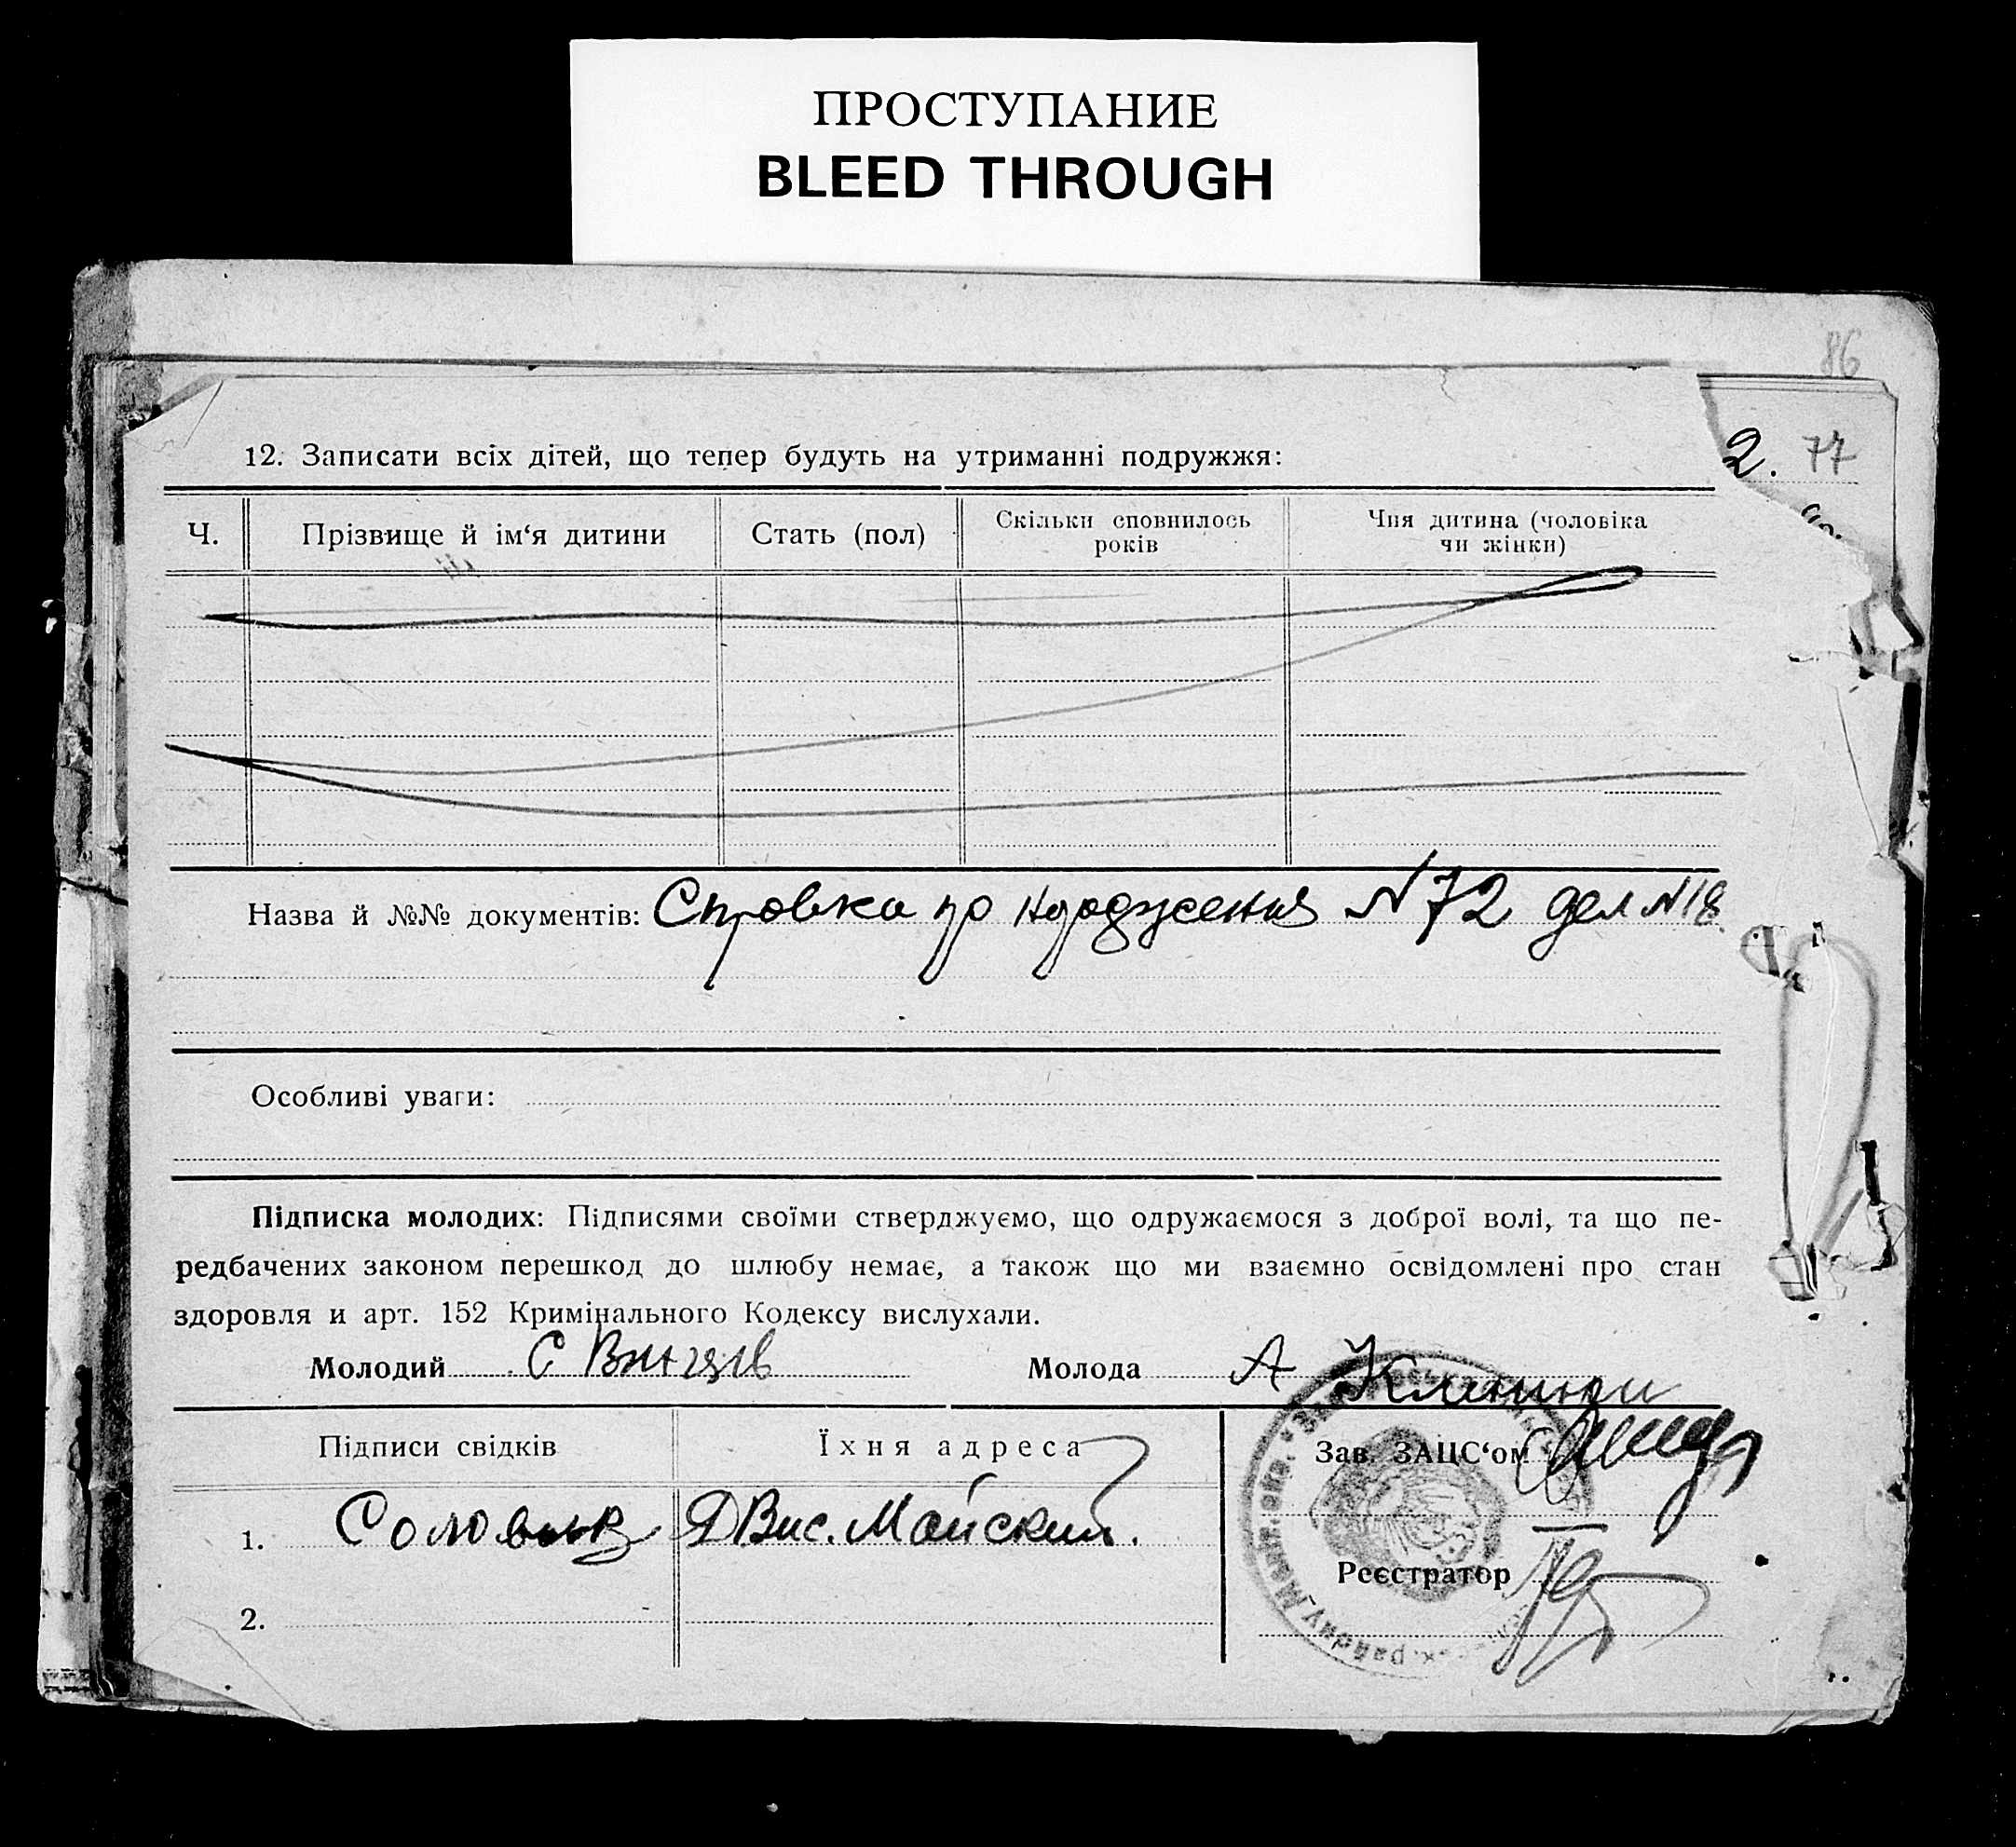 ПРОСТУПАНИЕ
BLEED THROUGH
86
2. 77
12. Записати всіх дітей, що тепер будуть на утриманні подружжя:
Ч. Прізвище й ім‘я дитини Стать (пол) Скільки сповнилось років Чия дитина (чоловіка чи жінки)
Назва й №№ документів: Справка про народження N 72 дел N 18
Особливі уваги:
Підписка молодих: Підписями своїми стверджуємо, що одружаємося з доброї волі, та що пе-
редбачених законом перешкод до шлюбу немає, а також що ми взаємно освідомлені про стан
здоровля и арт. 152 Кримінального Кодексу вислухали.
Молодий С Молода А
Підписи свідків Їхня адреса Зав. ЗАЦС‘ом
1. Вис. Майский.
Реєстратор
2.
району